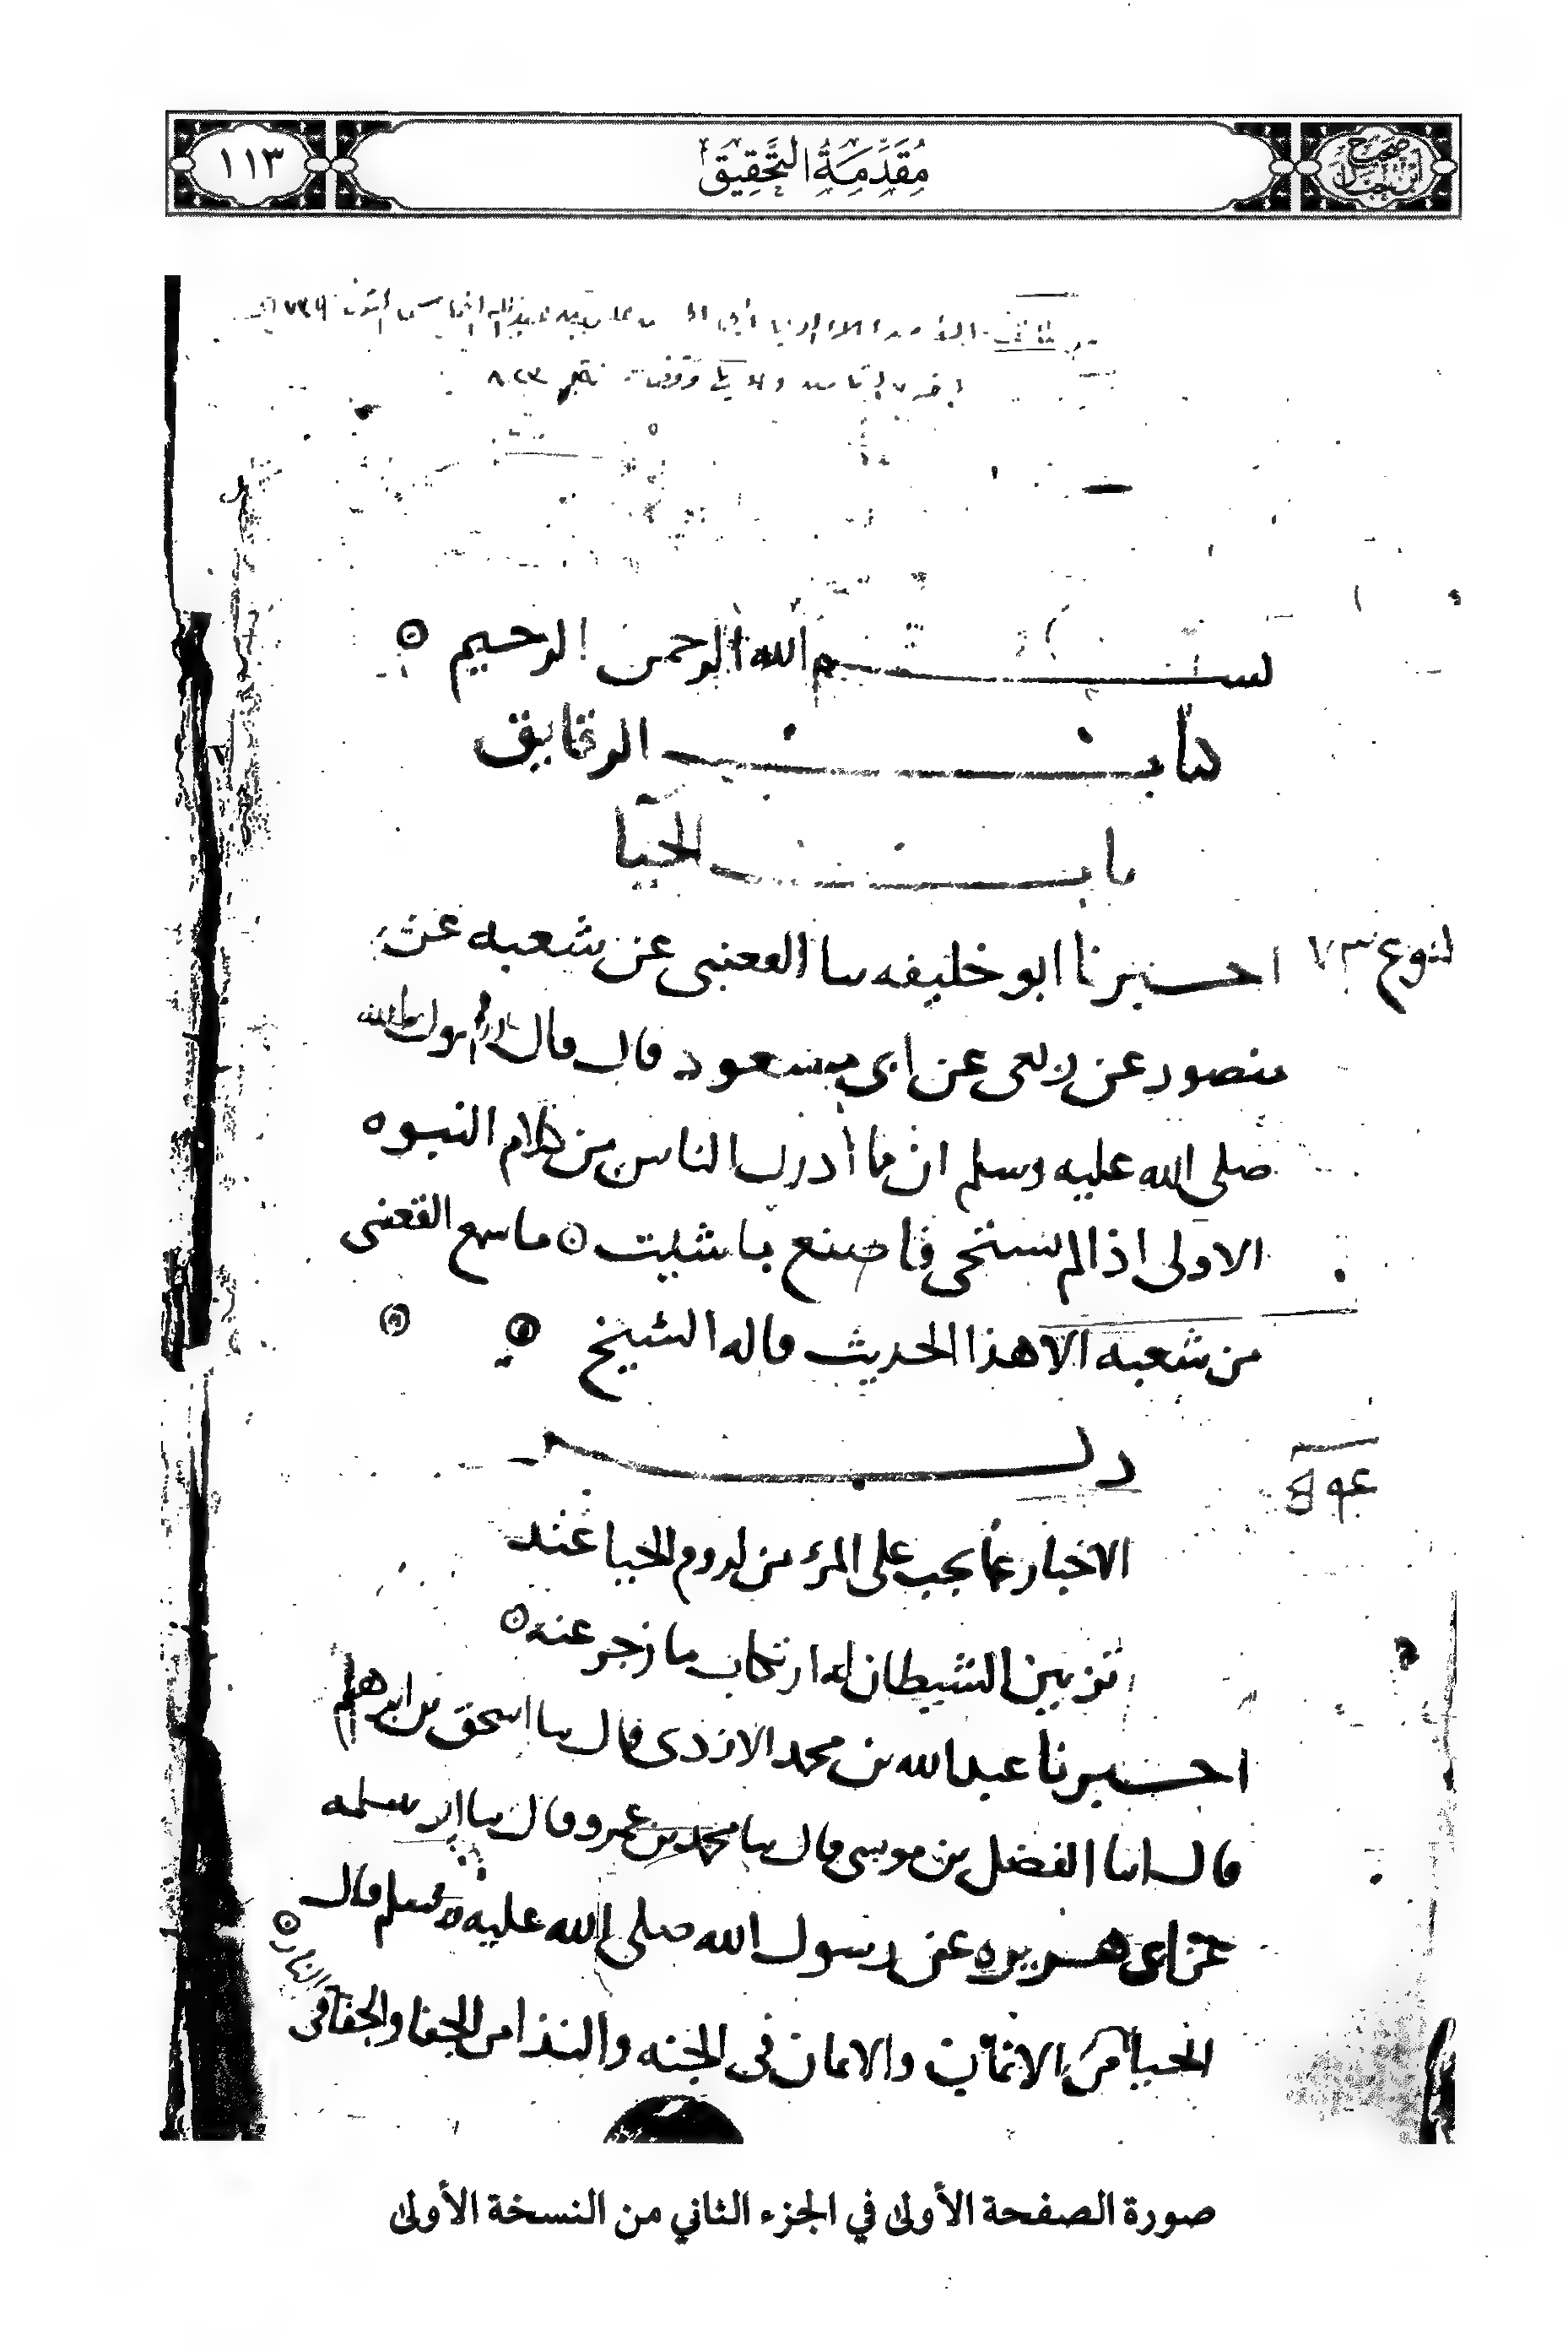 صحيح ابن حبان
مقدمة التحقيق
١١٣
بسم الله الرحمن الرحيم
كتاب الرقايق
باب الحيا
احبرنا ابو خليفه سا القعنبى عن شعبه عن
النوع ٧٣
منصور عن ربعى عن ابى مسعود قال قال رسول الله
صلى الله عليه وسلم ان مما أدرك الناس من كلام النبوه
الاولى اذا لم تستحى فاصنع ما شئت ما سمع القعنبى
من شعبه الا هذا الحديث قاله الشيخ
ذكر
الاخبار عما يجب على المرء من لزوم الحيا عند
تزيين الشيطان له ارتكاب ما زجر عنه
احبرنا عبد الله بن محمد الازدى قال سا اسحق بن ابرهيم
قال اسا الفضل بن موسى قال سا محمد بن عمرو قال سا ابو سلمه
عن ابى هريره عن رسول الله صلى الله عليه وسلم قال
الحيا من الايمان والايمان فى الجنه والبذا من الجفا والجفا فى
النار
صورة الصفحة الأولى في الجزء الثاني من النسخة الأولى